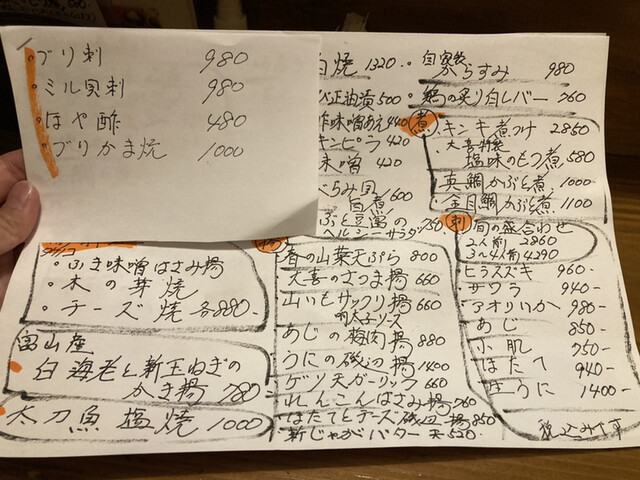 ブリ刺 980
ミル貝刺 980
ほや酢 480
ブリかま焼 1000
白焼 1320
500
味噌あえ 440
キンピラ 420
味噌 420
1600
旨煮
豆富の
ヘルシーサラダ 750
自家製
からすみ 980
鶏の炙り白レバー 760
煮
キンキ煮つけ 2860
大喜特製
塩味のもつ煮 580
真鯛かぶと煮 1000
金目鯛かぶと煮 1100
刺
旬の盛合わせ
2人前 2860
3〜4人前 4290
ヒラスズキ 960-
サワラ 940-
アオリいか 980-
あじ 850-
小肌 750-
ほたて 940-
生うに 1400-
税込み
揚
春の山菜天ぷら 800
大喜のさつま揚 660
山いもサックリ揚 660
明太子ソース
あじの梅肉揚 880
うにの磯辺揚 1400
ゲソ天ガーリック 660
れんこんはさみ揚 760
ほたてとチーズ磯辺揚 850
新じゃがバター天 520
ふき味噌はさみ揚
木の芽焼
チーズ焼 各880-
富山産
白海老と新玉ねぎの
かき揚 780
太刀魚塩焼 1000